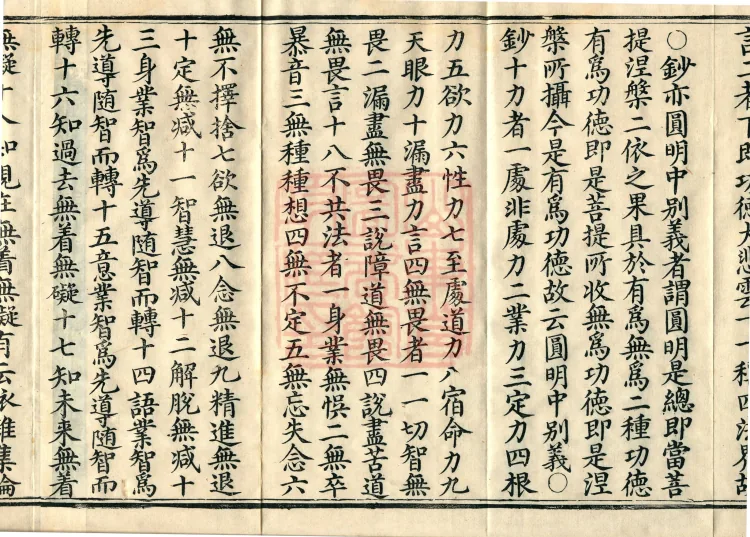 言二者下即功德大悲雲一一種四法界故
○鈔亦圓明中別義者謂圓明是總即當菩
提涅槃二依之果具於有爲無爲二種功德
有爲功德即是菩提所收無爲功德即是涅
槃所攝今是有爲功德故云圓明中別義○
鈔十力者一處非處力二業力三定力四根
力五欲力六性力七至處道力八宿命力九
天眼力十漏盡力言四無畏者一一切智無
畏二漏盡無畏三說障道無畏四說盡苦道
無畏言十八不共法者一身業無悞二無卒
暴音三無種種想四無不定五無忘失念六
無不擇捨七欲無退八念無退九精進無退
十定無减十一智慧無减十二解脫無减十
三身業智爲先導随智而轉十四語業智爲
先導随智而轉十五意業智爲先導随智而
轉十六知過去無着無礙十七知未来無着
無礙十八知現在無着無礙有云依雜集論